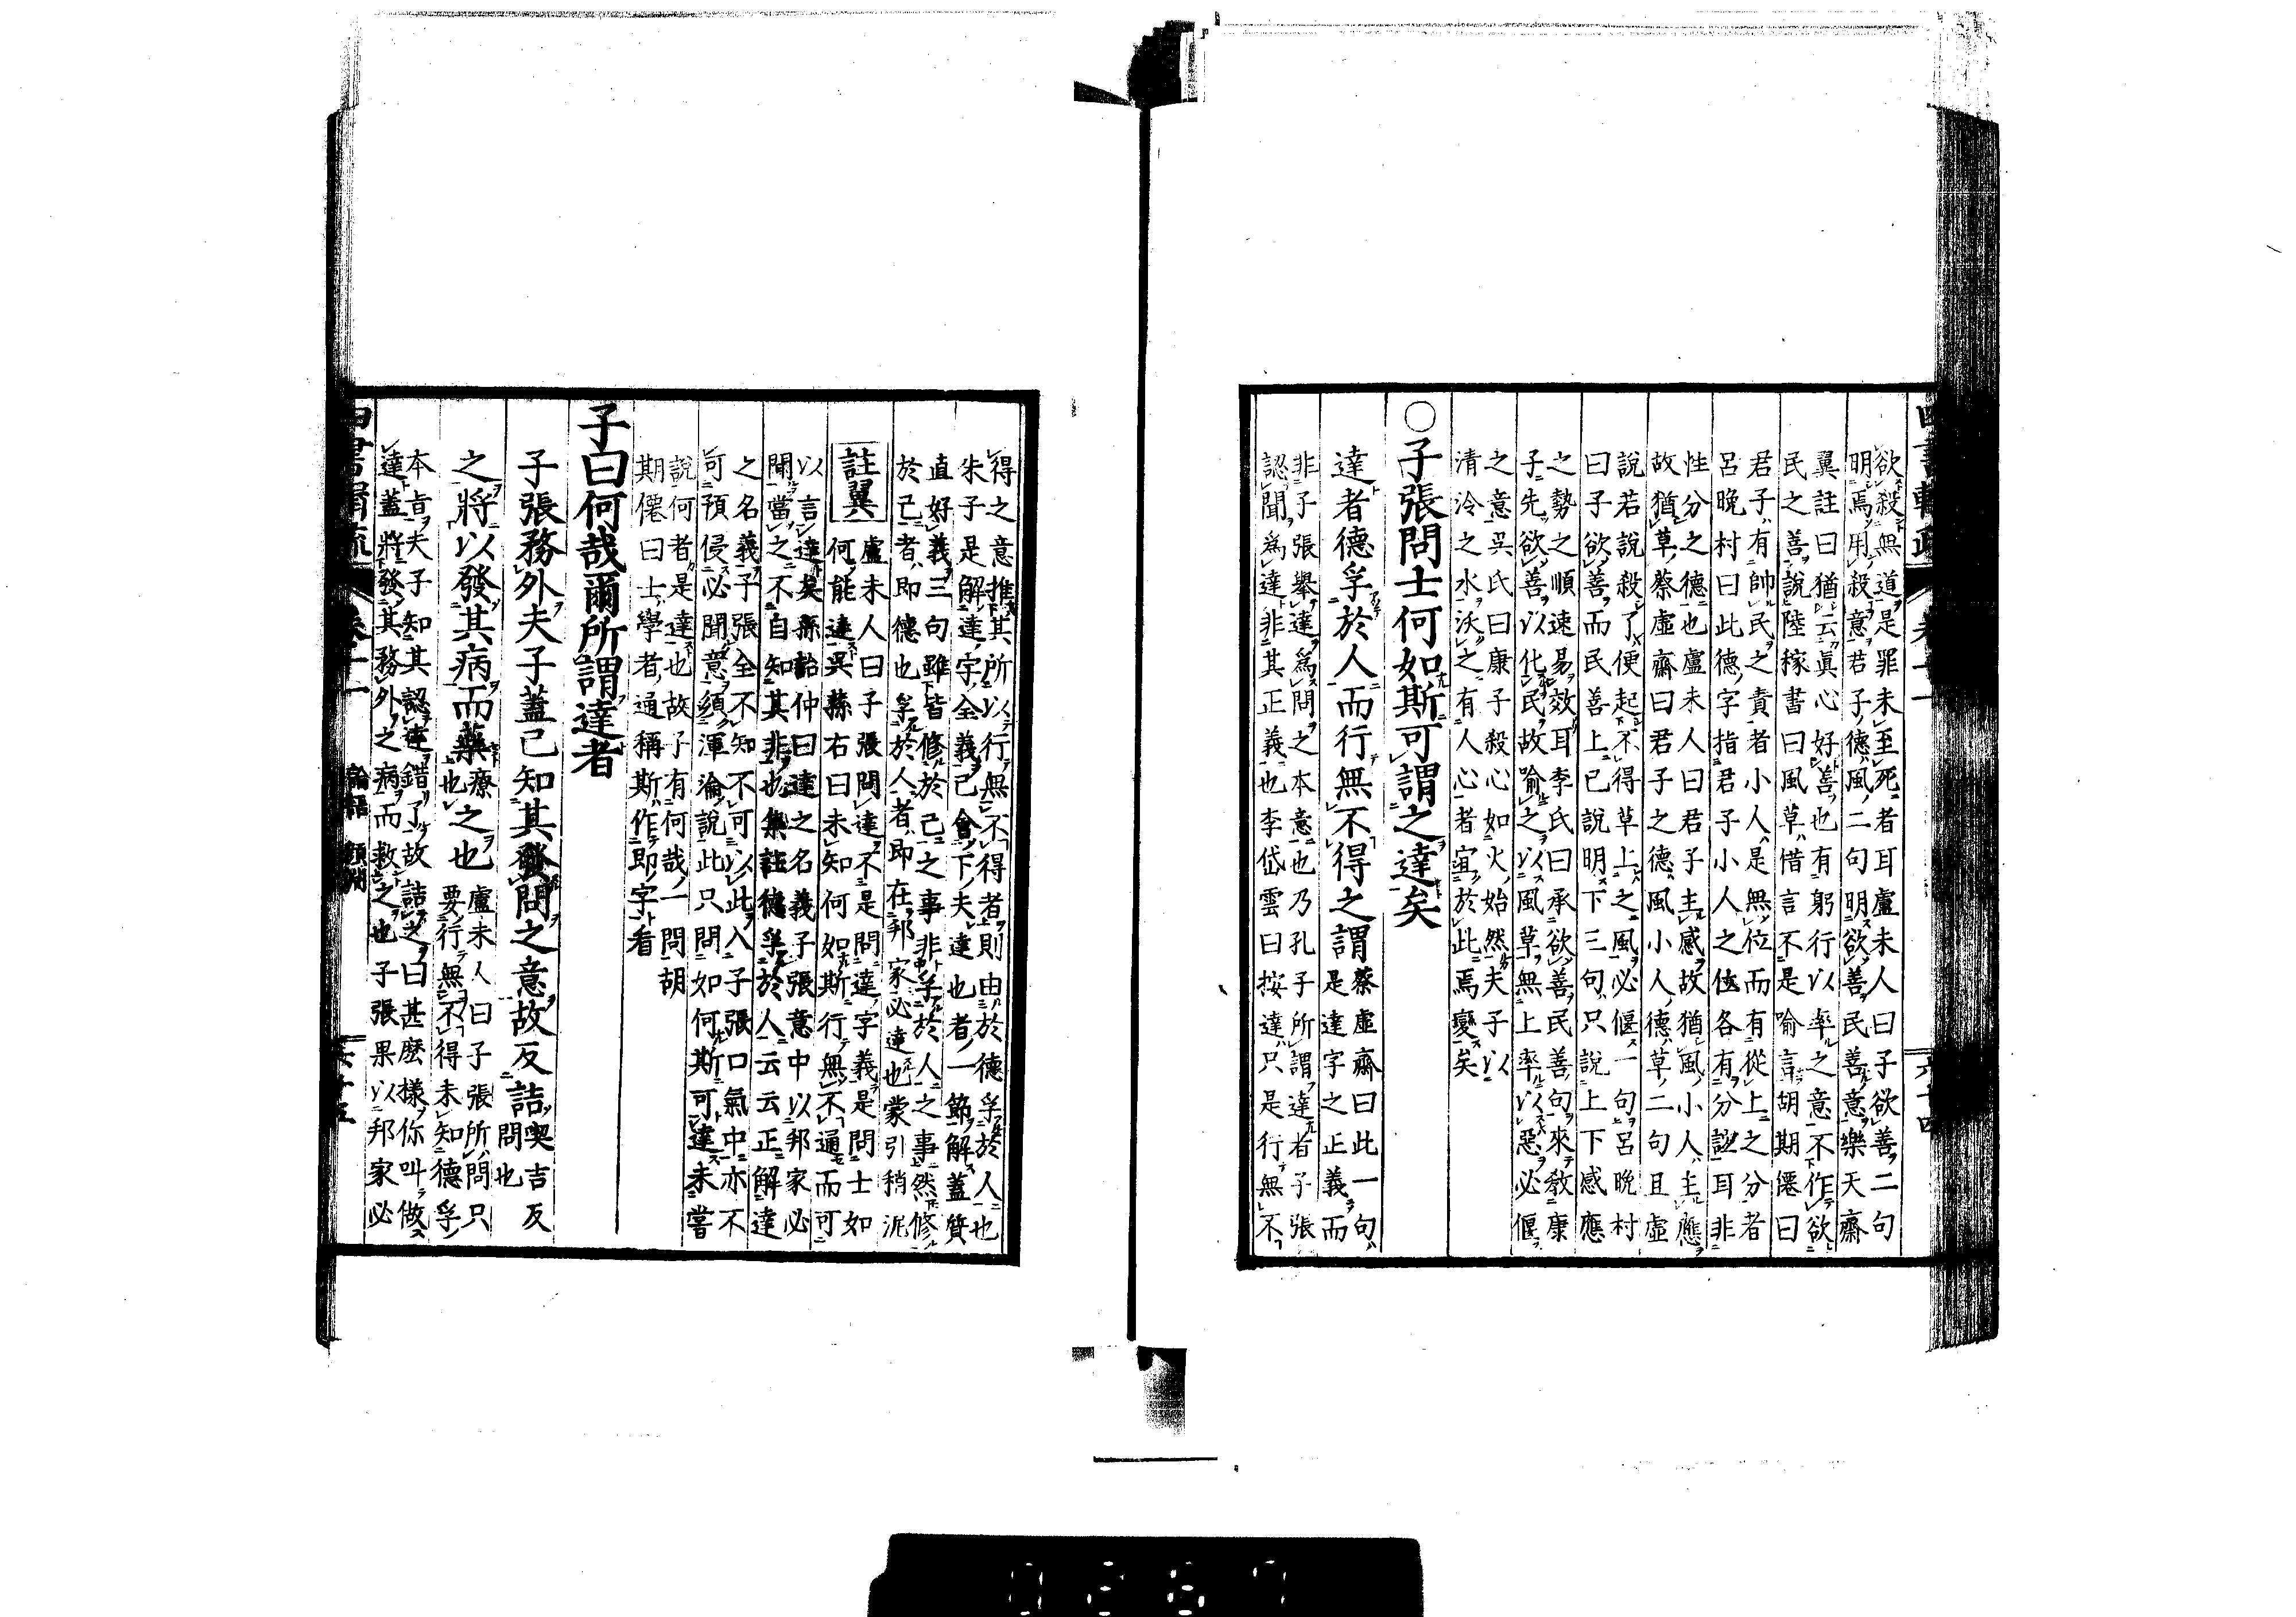 欲殺無道是罪未至死者耳盧未人曰子欲善二句
明焉用殺意君子德風二句明欲善民善意樂天齋
翼註曰猶云眞心好善也有躬行以率之意不作欲
民之善說陸稼書曰風草借言不是喻言胡期僊曰
君子有帥民之責者小人是無位而有從上之分者
呂晚村曰此德字指君子小人之位各有分誼耳非
性分之德也盧未人曰君子主感故猶風小人主應
故猶草蔡虛齋曰君子之德風小人德草二句且虛
說若說殺了便起不得草上之風必偃一句呂晚村
曰子欲善而民善上已說明下三句只說上下感應
之勢之順速易效耳李氏曰承欲善民善句來敎康
子先欲善以化民故喻之以風草無上率以惡必偃
之意吳氏曰康子殺心如火始然夫子以
清冷之水沃之有人心者宜於此焉變矣
○子張問士何如斯可謂之達矣
達者德孚於人而行無不得之謂
蔡虛齋曰此一句
是達字之正義而
非子張舉達爲問之本意也乃孔子所謂達者子張
認聞爲達非其正義也李岱雲曰按達只是行無不
得之意推其所以行無不得者則由於德孚於人也
朱子是解達字全義已會下夫達也者一節解蓋質
直好義三句雖皆修於己之事非孚於人之事然修
於己者即德也孚於人者即在邦家必達也蒙引稍泥
註翼
盧未人曰子張問達不是問達字義是問士如
何能達吳蓀右曰未知何如斯行無不通而可
以言達矣孫詒仲曰達之名義子張意中以邦家必
聞當之不自知其非也集註德孚於人云云正解達
之名義子張全不知不可以此入子張口氣中亦不
可預侵必聞意須渾淪說此只問如何斯可達未嘗
說何者是達也故子有何哉一問胡
期僊曰士學者通稱斯作即字看
子曰何哉爾所謂達者
子張務外夫子蓋已知其發問之意故反詰
喫吉反
問也
之將以發其病而藥療之也
盧未人曰子張所問只
要行無不得未知德孚
本旨夫子知其認達錯了故詰之曰甚麼樣你叫做
達蓋將發其務外之病而救之也子張果以邦家必